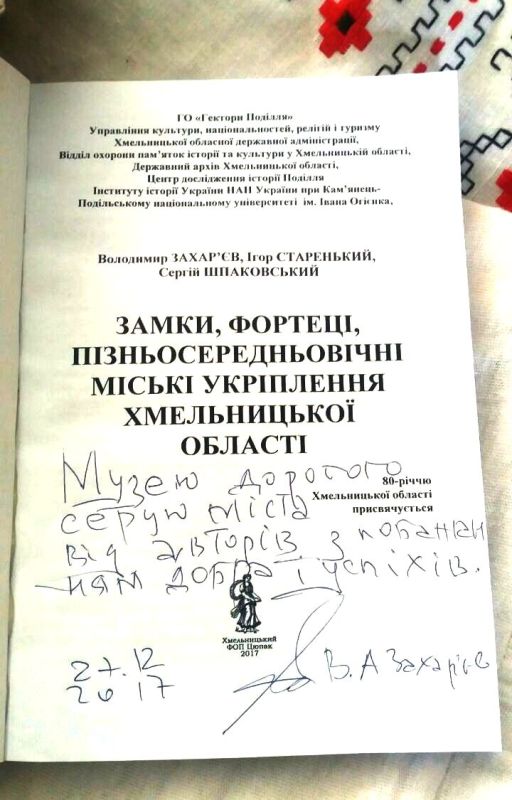 ГО «Гектори Поділля»
Управління культури, національностей, релігій і туризму
Хмельницької обласної державної адміністрації,
Відділ охорони пам'яток історії та культури у Хмельницькій області,
Державний архів Хмельницької області,
Центр дослідження історії Поділля
Інституту історії України НАН України при Кам'янець-
Подільському національному університеті ім. Івана Огієнка,
Володимир ЗАХАР'ЄВ, Ігор СТАРЕНЬКИЙ,
Сергій ШПАКОВСЬКИЙ
ЗАМКИ, ФОРТЕЦІ,
ПІЗНЬОСЕРЕДНЬОВІЧНІ
МІСЬКІ УКРІПЛЕННЯ
ХМЕЛЬНИЦЬКОЇ
ОБЛАСТІ
80-річчю
Хмельницької області
присвячується
Музею дорогого
серцю міста
від авторів з побажан
ням добра і успіхів.
Хмельницький
ФОП Цюпак
2017
27.12
2017
В.А Захар'єв